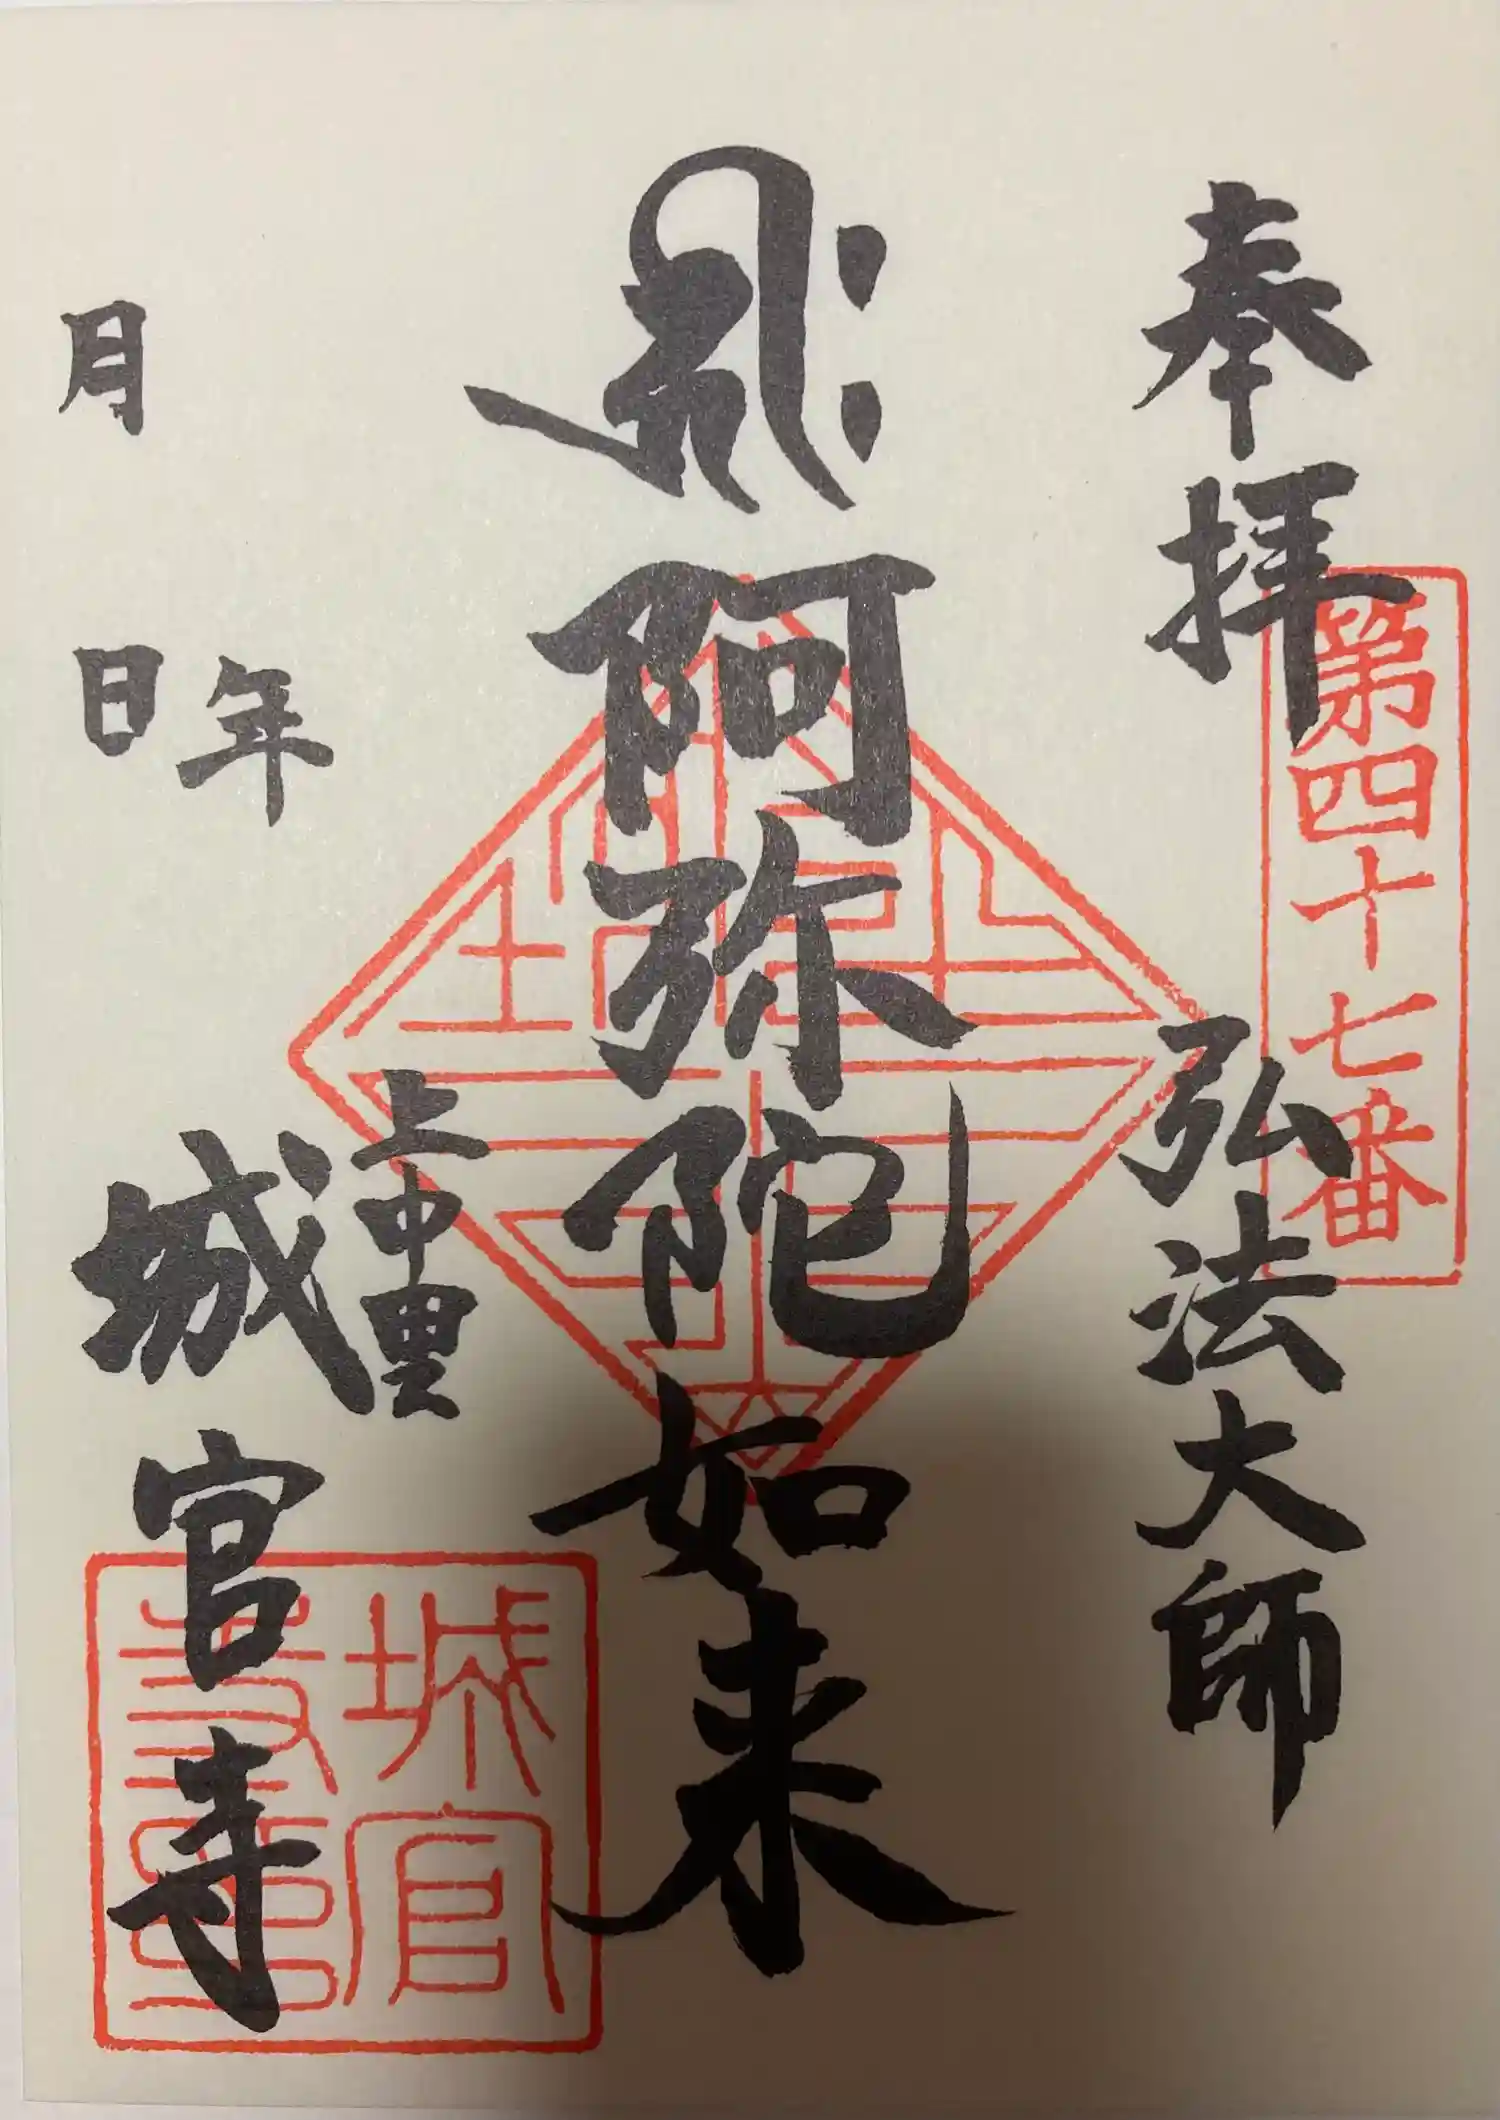 奉拝
第四十七番
弘法大師
阿弥陀如来
上中里
城官寺
年
月 日
城官
寺印